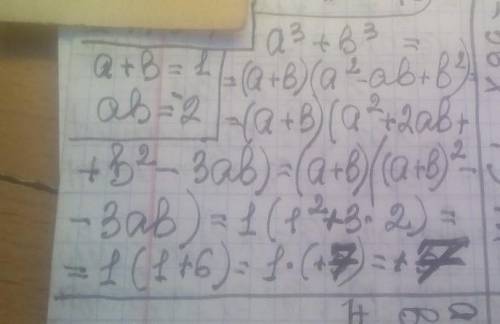 a³ + b³ =
a+b = 1 = (a+b)(a² - ab + b²) =
ab = -2 = (a+b)(a² + 2ab +
+ b² - 3ab) = (a+b)((a+b)² -
- 3ab) = 1(1² + 3 · 2) =
= 1(1+6) = 1 · (+7) = +7